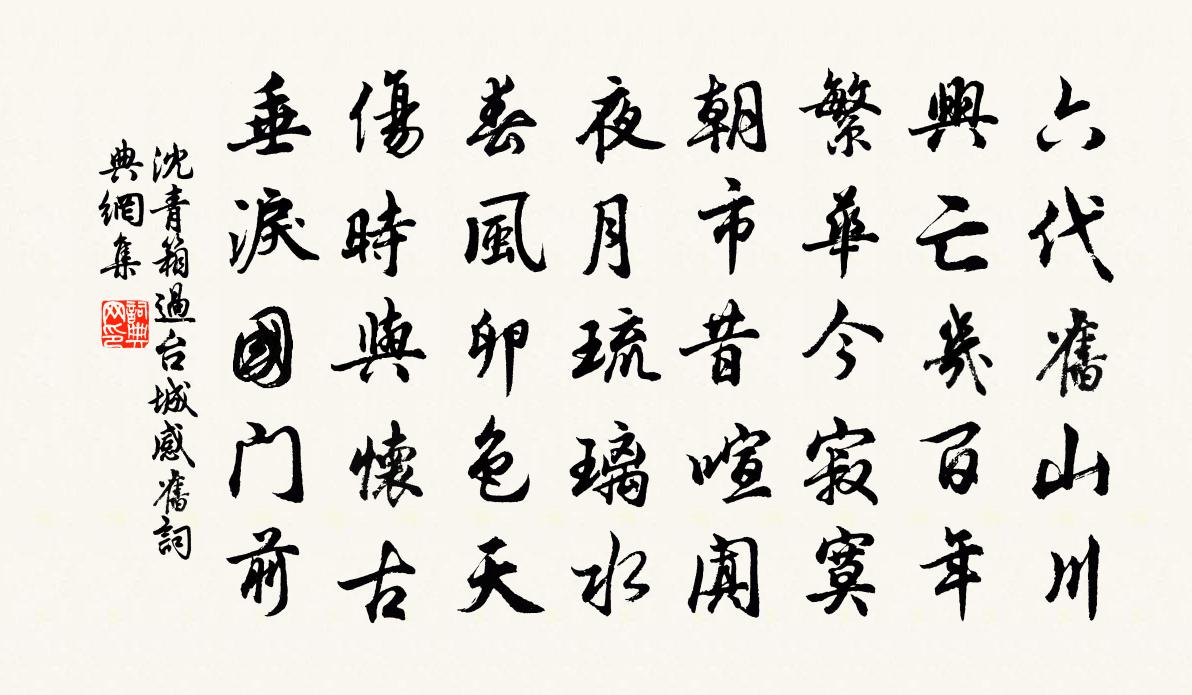 六代舊山川
興亡幾百年
繁華今寂寞
朝市昔喧闐
夜月琉璃水
春風卵色天
傷時與懷古
垂淚國门前
沈青箱過台城感舊詞
典網集
詞典
网印